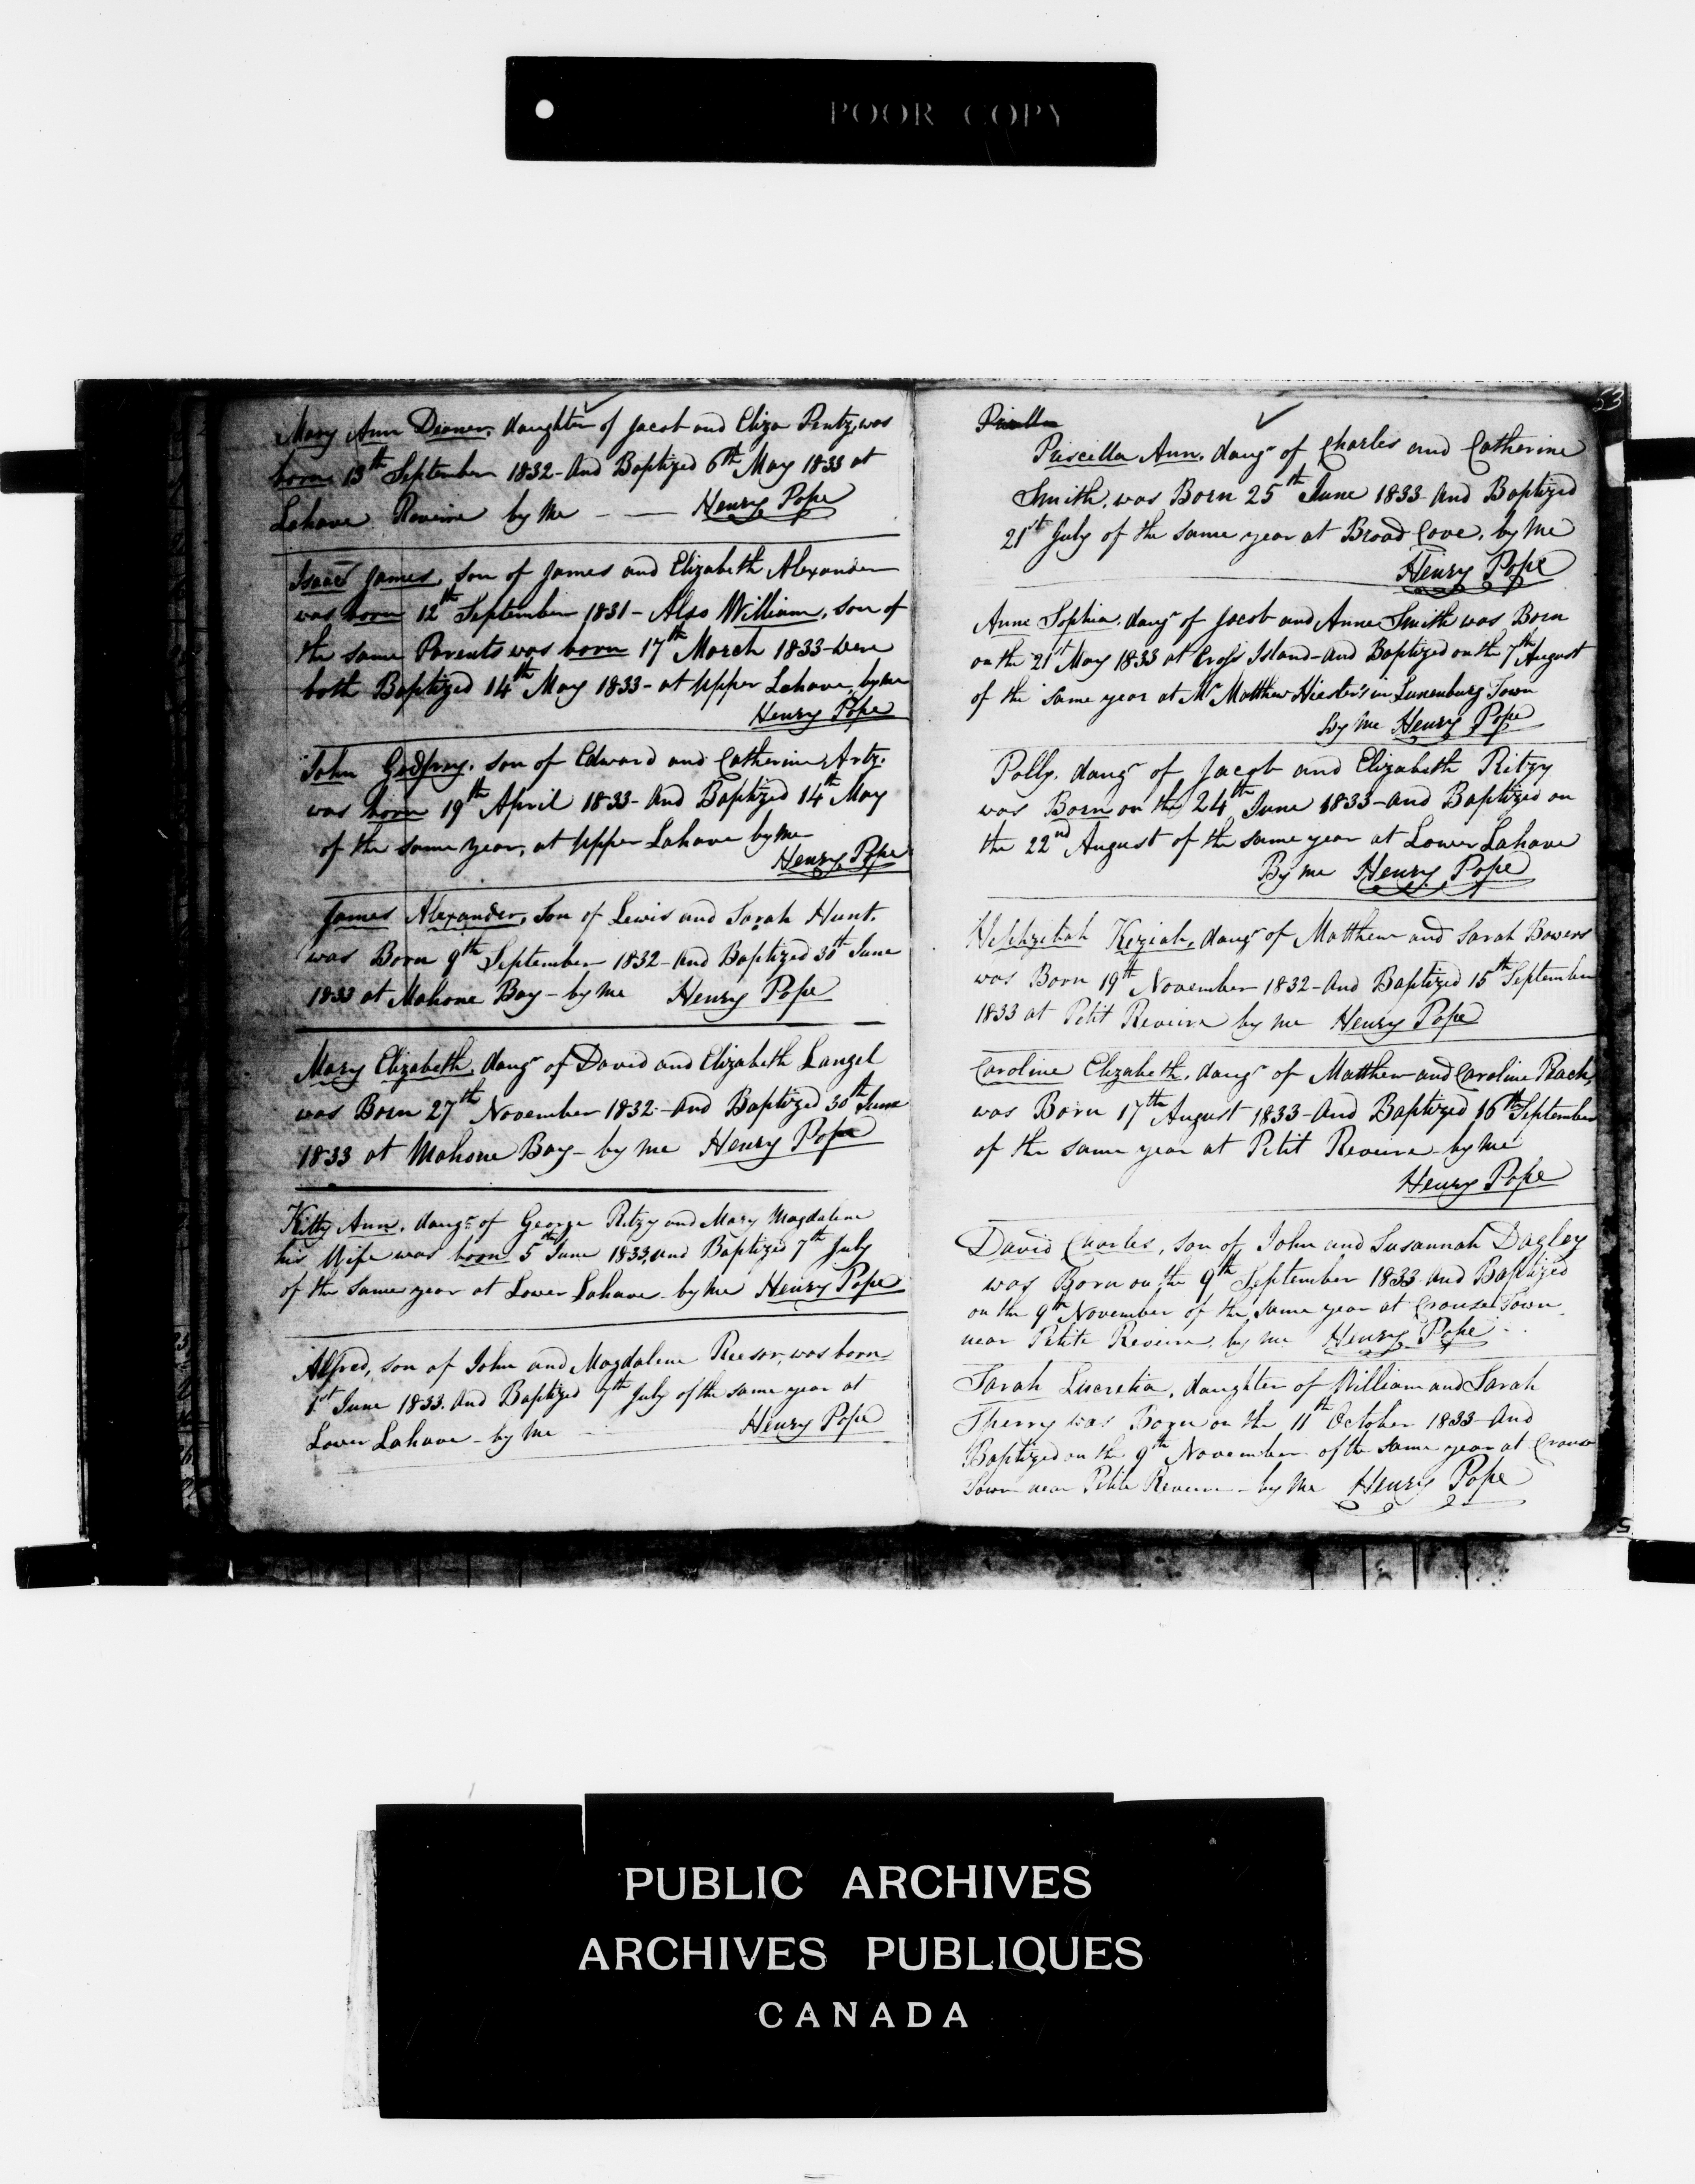 POOR COPY
Mary Ann Dianer, daughter of Jacob and Eliza Pentz, was
born 13th September 1832 - And Baptized 6th May 1833 at
Lahave Reviere by Me - — Henry Pope
Isaac James, son of James and Elizabeth Alexander
was born 12th September 1831 - Also William, son of
the same Parents was born 17th March 1833 - were
both Baptized 14th May 1833 - at Upper Lahave, by me
Henry Pope
John Godfray, son of Edward and Catherine Artz.
was born 19th April 1833 - And Baptized 14th May
of the same year, at Upper Lahave by Me
Henry Pope
James Alexander, Son of Lewis and Sarah Hunt,
was Born 9th September 1832 - And Baptized 30th June
1833 at Mahone Bay - by Me Henry Pope
Mary Elizabeth, daugr of David and Elizabeth Langel
was Born 27th November 1832 - And Baptized 30th June
1833 at Mahone Bay - by Me Henry Pope
Kitty Ann, daugr of George Ritzy and Mary Magdalene
his Wife was born 5th June 1833, and Baptized 7th July
of the same year at Lower Lahave - by Me Henry Pope
Alfred, son of John and Magdalene Reeser, was born
1st June 1833. And Baptized 7th July of the same year at
Lower Lahave - by Me Henry Pope
53
Priscilla Ann, daugr of Charles and Catherine
Smith, was Born 25th June 1833 - And Baptized
21st July of the same year at Broad Cove, by Me
Henry Pope
Anne Sophia, daugr of Jacob and Anne Smith was Born
on the 21st May 1833 at Cross Island - and Baptized on the 7th August
of the same year at Mr Matthew Hiester's in Lunenburg Town
By Me Henry Pope
Polly, daugr of Jacob and Elizabeth Ritzy
was Born on the 24th June 1833 - and Baptized on
the 22nd August of the same year at Lower Lahave
By me Henry Pope
Hephzebah Keziah, daugr of Matthew and Sarah Bowers
was Born 19th November 1832 - And Baptized 15th September
1833 at Petit Reviere by me Henry Pope
Caroline Elizabeth, daugr of Matthew and Caroline Peach,
was Born 17th August 1833 - And Baptized 16th September
of the same year at Petit Reviere - by Me
Henry Pope
David Charles, Son of John and Susannah Dagley
was Born on the 9th September 1833 - And Baptized
on the 9th November of the same year at Crouse Town
near Petite Reviere, by me Henry Pope
Sarah Lucretia, daughter of William and Sarah
Sperry was Born on the 11th October 1833 - And
Baptized on the 9th November of the same year at Crouse
Town near Petite Reviere - by Me Henry Pope
PUBLIC ARCHIVES
ARCHIVES PUBLIQUES
CANADA